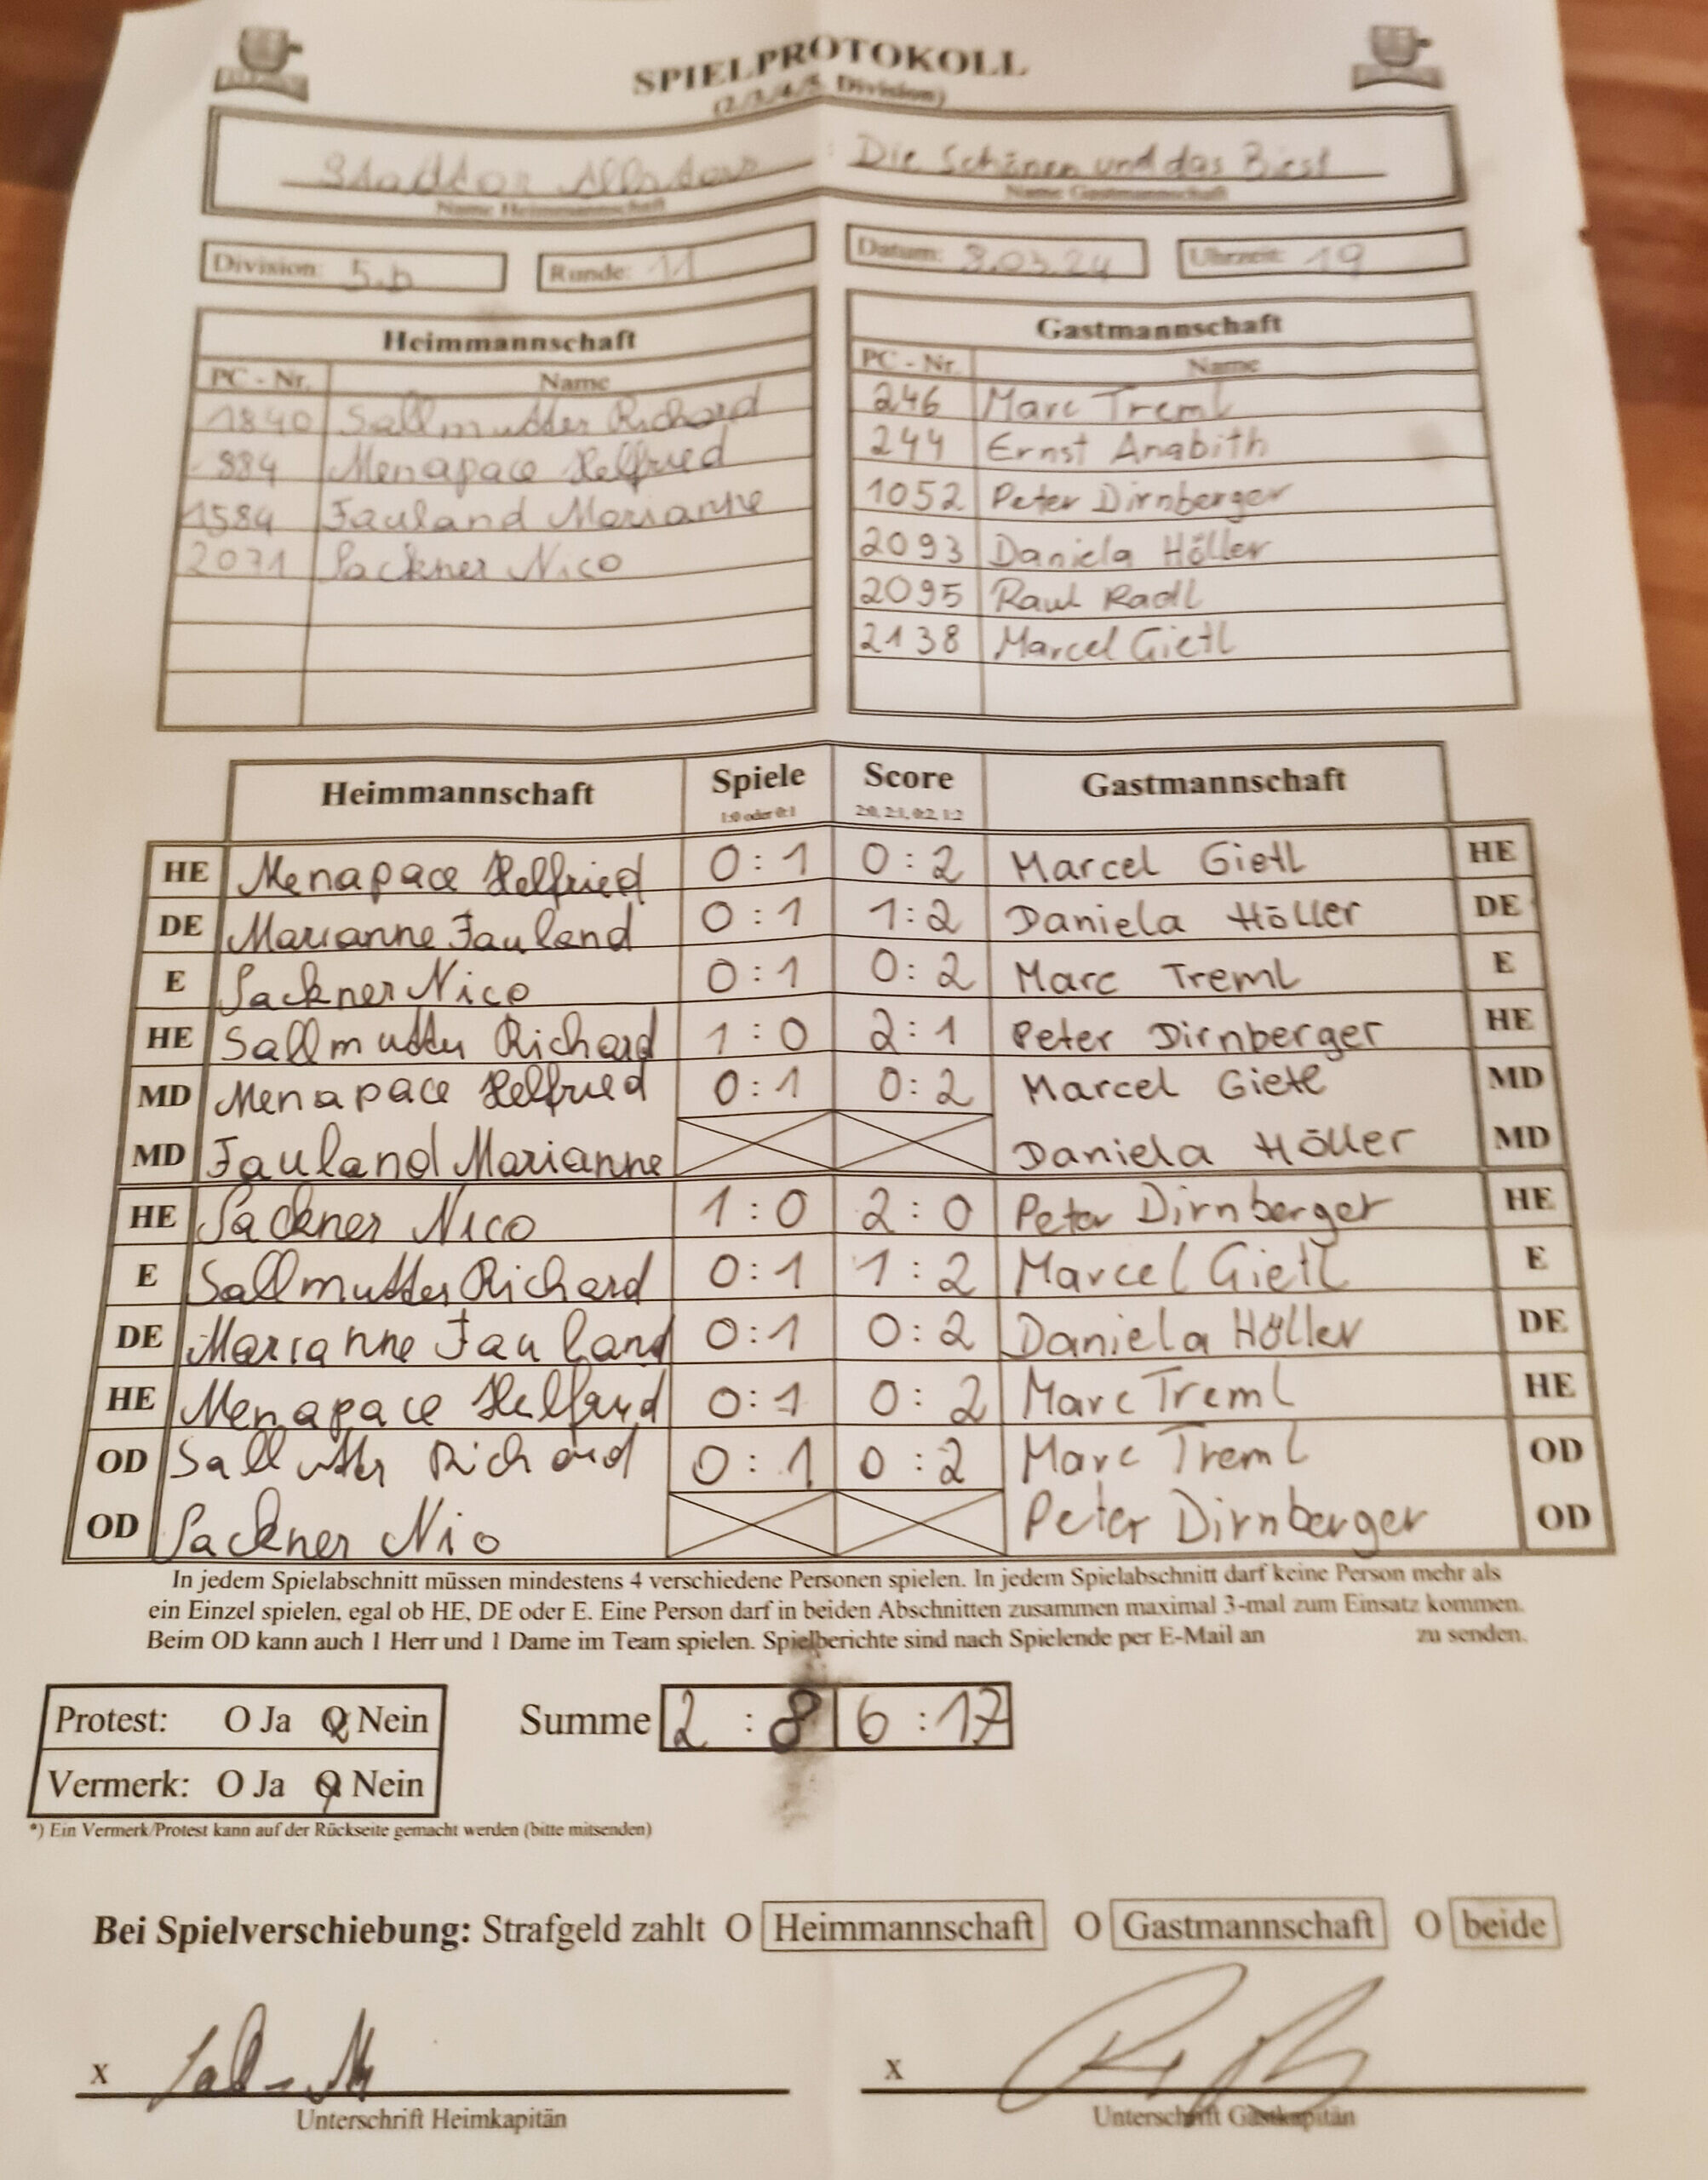 SPIELPROTOKOLL
(2./3./4./5. Division)
: Die Schönen und das Biest
Name Heimmannschaft Name Gastmannschaft
Division: 5.b Runde: 11 Datum: 8.03.24 Uhrzeit: 19
Heimmannschaft
PC - Nr. Name
1840 Sallmutter Richard
884 Menapace Helfried
1584 Fauland Marianne
2071 Packner Nico
Gastmannschaft
PC - Nr. Name
246 Marc Treml
244 Ernst Anabith
1052 Peter Dirnberger
2093 Daniela Höller
2095 Raul Radl
2138 Marcel Gietl
Heimmannschaft Spiele Score Gastmannschaft
1:0 oder 0:1 2:0, 2:1, 0:2, 1:2
HE Menapace Helfried 0:1 0:2 Marcel Gietl HE
DE Marianne Fauland 0:1 1:2 Daniela Höller DE
E Packner Nico 0:1 0:2 Marc Treml E
HE Sallmutter Richard 1:0 2:1 Peter Dirnberger HE
MD Menapace Helfried 0:1 0:2 Marcel Gietl MD
MD Fauland Marianne Daniela Höller MD
HE Packner Nico 1:0 2:0 Peter Dirnberger HE
E Sallmutter Richard 0:1 1:2 Marcel Gietl E
DE Marianne Fauland 0:1 0:2 Daniela Höller DE
HE Menapace Helfried 0:1 0:2 Marc Treml HE
OD Sallutter Richard 0:1 0:2 Marc Treml OD
OD Packner Nio Peter Dirnberger OD
In jedem Spielabschnitt müssen mindestens 4 verschiedene Personen spielen. In jedem Spielabschnitt darf keine Person mehr als
ein Einzel spielen, egal ob HE, DE oder E. Eine Person darf in beiden Abschnitten zusammen maximal 3-mal zum Einsatz kommen.
Beim OD kann auch 1 Herr und 1 Dame im Team spielen. Spielberichte sind nach Spielende per E-Mail an zu senden.
Protest: O Ja O Nein Summe 2:8 6:17
Vermerk: O Ja O Nein
*) Ein Vermerk/Protest kann auf der Rückseite gemacht werden (bitte mitsenden)
Bei Spielverschiebung: Strafgeld zahlt O Heimmannschaft O Gastmannschaft O beide
x x
Unterschrift Heimkapitän Unterschrift Gastkapitän